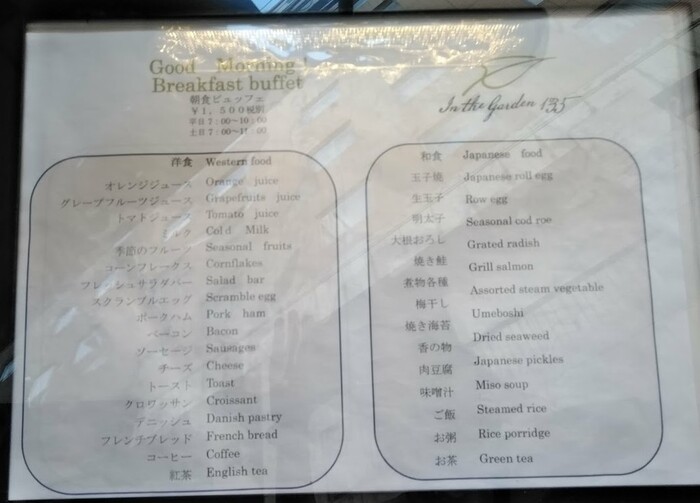 Good Morning !
Breakfast buffet
朝食ビュッフェ
¥1,500税別
平日7:00~10:00
土日7:00~11:00
In the Garden 135
洋食 Western food
オレンジジュース Orange juice
グレープフルーツジュース Grapefruits juice
トマトジュース Tomato juice
ミルク Cold Milk
季節のフルーツ Seasonal fruits
コーンフレークス Cornflakes
フレッシュサラダバー Salad bar
スクランブルエッグ Scramble egg
ポークハム Pork ham
ベーコン Bacon
ソーセージ Sausages
チーズ Cheese
トースト Toast
クロワッサン Croissant
デニッシュ Danish pastry
フレンチブレッド French bread
コーヒー Coffee
紅茶 English tea
和食 Japanese food
玉子焼 Japanese roll egg
生玉子 Row egg
明太子 Seasonal cod roe
大根おろし Grated radish
焼き鮭 Grill salmon
煮物各種 Assorted steam vegetable
梅干し Umeboshi
焼き海苔 Dried seaweed
香の物 Japanese pickles
肉豆腐
味噌汁 Miso soup
ご飯 Steamed rice
お粥 Rice porridge
お茶 Green tea